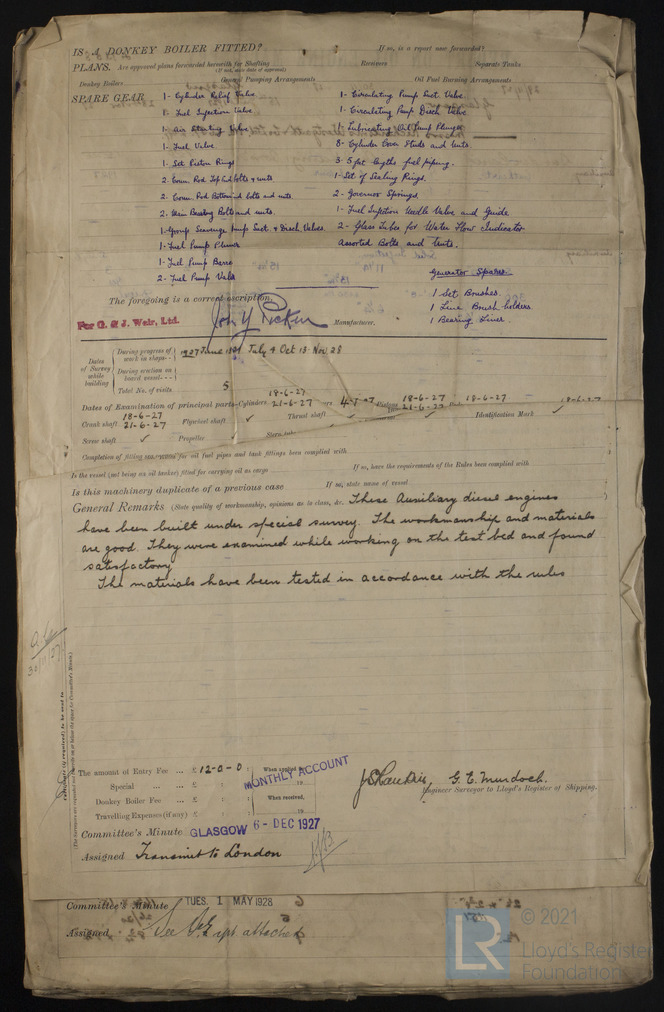 IS A DONKEY BOILER FITTED? If so, is a report now forwarded?
PLANS. Are approved plans forwarded herewith for Shafting Receivers Separate Tanks
(If not, state date of approval)
Donkey Boilers General Pumping Arrangements Oil Fuel Burning Arrangements
SPARE GEAR
1- Cylinder Relief Valve
1- Fuel Injection Valve
1- Air Starting Valve
1- Fuel Valve
1- Set Piston Rings
2- Conn. Rod Top End bolts & nuts
2- Conn. Rod Bottom end bolts and nuts
2- Main Bearing Bolts and nuts.
1- Group Scavenge Pump Suct. & Disch. Valves.
1- Fuel Pump Plunger
1- Fuel Pump Barrel
2- Fuel Pump Valve
1- Circulating Pump Suct. Valve.
1- Circulating Pump Disch Valve
1- Lubricating Oil Pump Plunger
8- Cylinder Cover Studs and nuts.
3- 5 feet lengths fuel piping.
1- Set of Sealing Rings.
2- Governor Springs.
1- Fuel Injection Needle Valve and Guide
2- Glass Tubes for Water Flow Indicator
Assorted Bolts and Nuts.
Generator Spares.
1 Set Brushes.
1 Line Brush holders.
1 Bearing Liner.
The foregoing is a correct description,
For G. & J. Weir, Ltd. Manufacturer.
Dates of Survey while building
During progress of work in shops -- 1927 June July 4 Oct 13 Nov 28
During erection on board vessel ---
Total No. of visits 5
Dates of Examination of principal parts—Cylinders 18-6-27 21-6-27 Pistons 18-6-27 21-6-27 18-6-27 18-6-27
Crank shaft 18-6-27 21-6-27 Flywheel shaft ✓ Thrust shaft ✓ Identification Mark ✓
Screw shaft ✓ Propeller
Completion of fitting sea connections for oil fuel pipes and tank fittings been complied with
Is the vessel (not being an oil tanker) fitted for carrying oil as cargo If so, have the requirements of the Rules been complied with
Is this machinery duplicate of a previous case If so, state name of vessel
General Remarks (State quality of workmanship, opinions as to class, &c. These Auxiliary diesel engines
have been built under special survey. The workmanship and materials
are good. They were examined while working on the test bed and found
satisfactory
The materials have been tested in accordance with the rules
30/11/27
The amount of Entry Fee ... £ 12-0-0 When applied for
Special ... £
Donkey Boiler Fee ... £ When received,
Travelling Expenses (if any) £
MONTHLY ACCOUNT
G. C. Murdoch.
Engineer Surveyor to Lloyd's Register of Shipping.
Committee's Minute GLASGOW 6 - DEC 1927
Assigned Transmit to London
Committee's Minute TUES. 1 MAY 1928
Assigned See attached
LR
© 2021
Lloyd's Register
Foundation